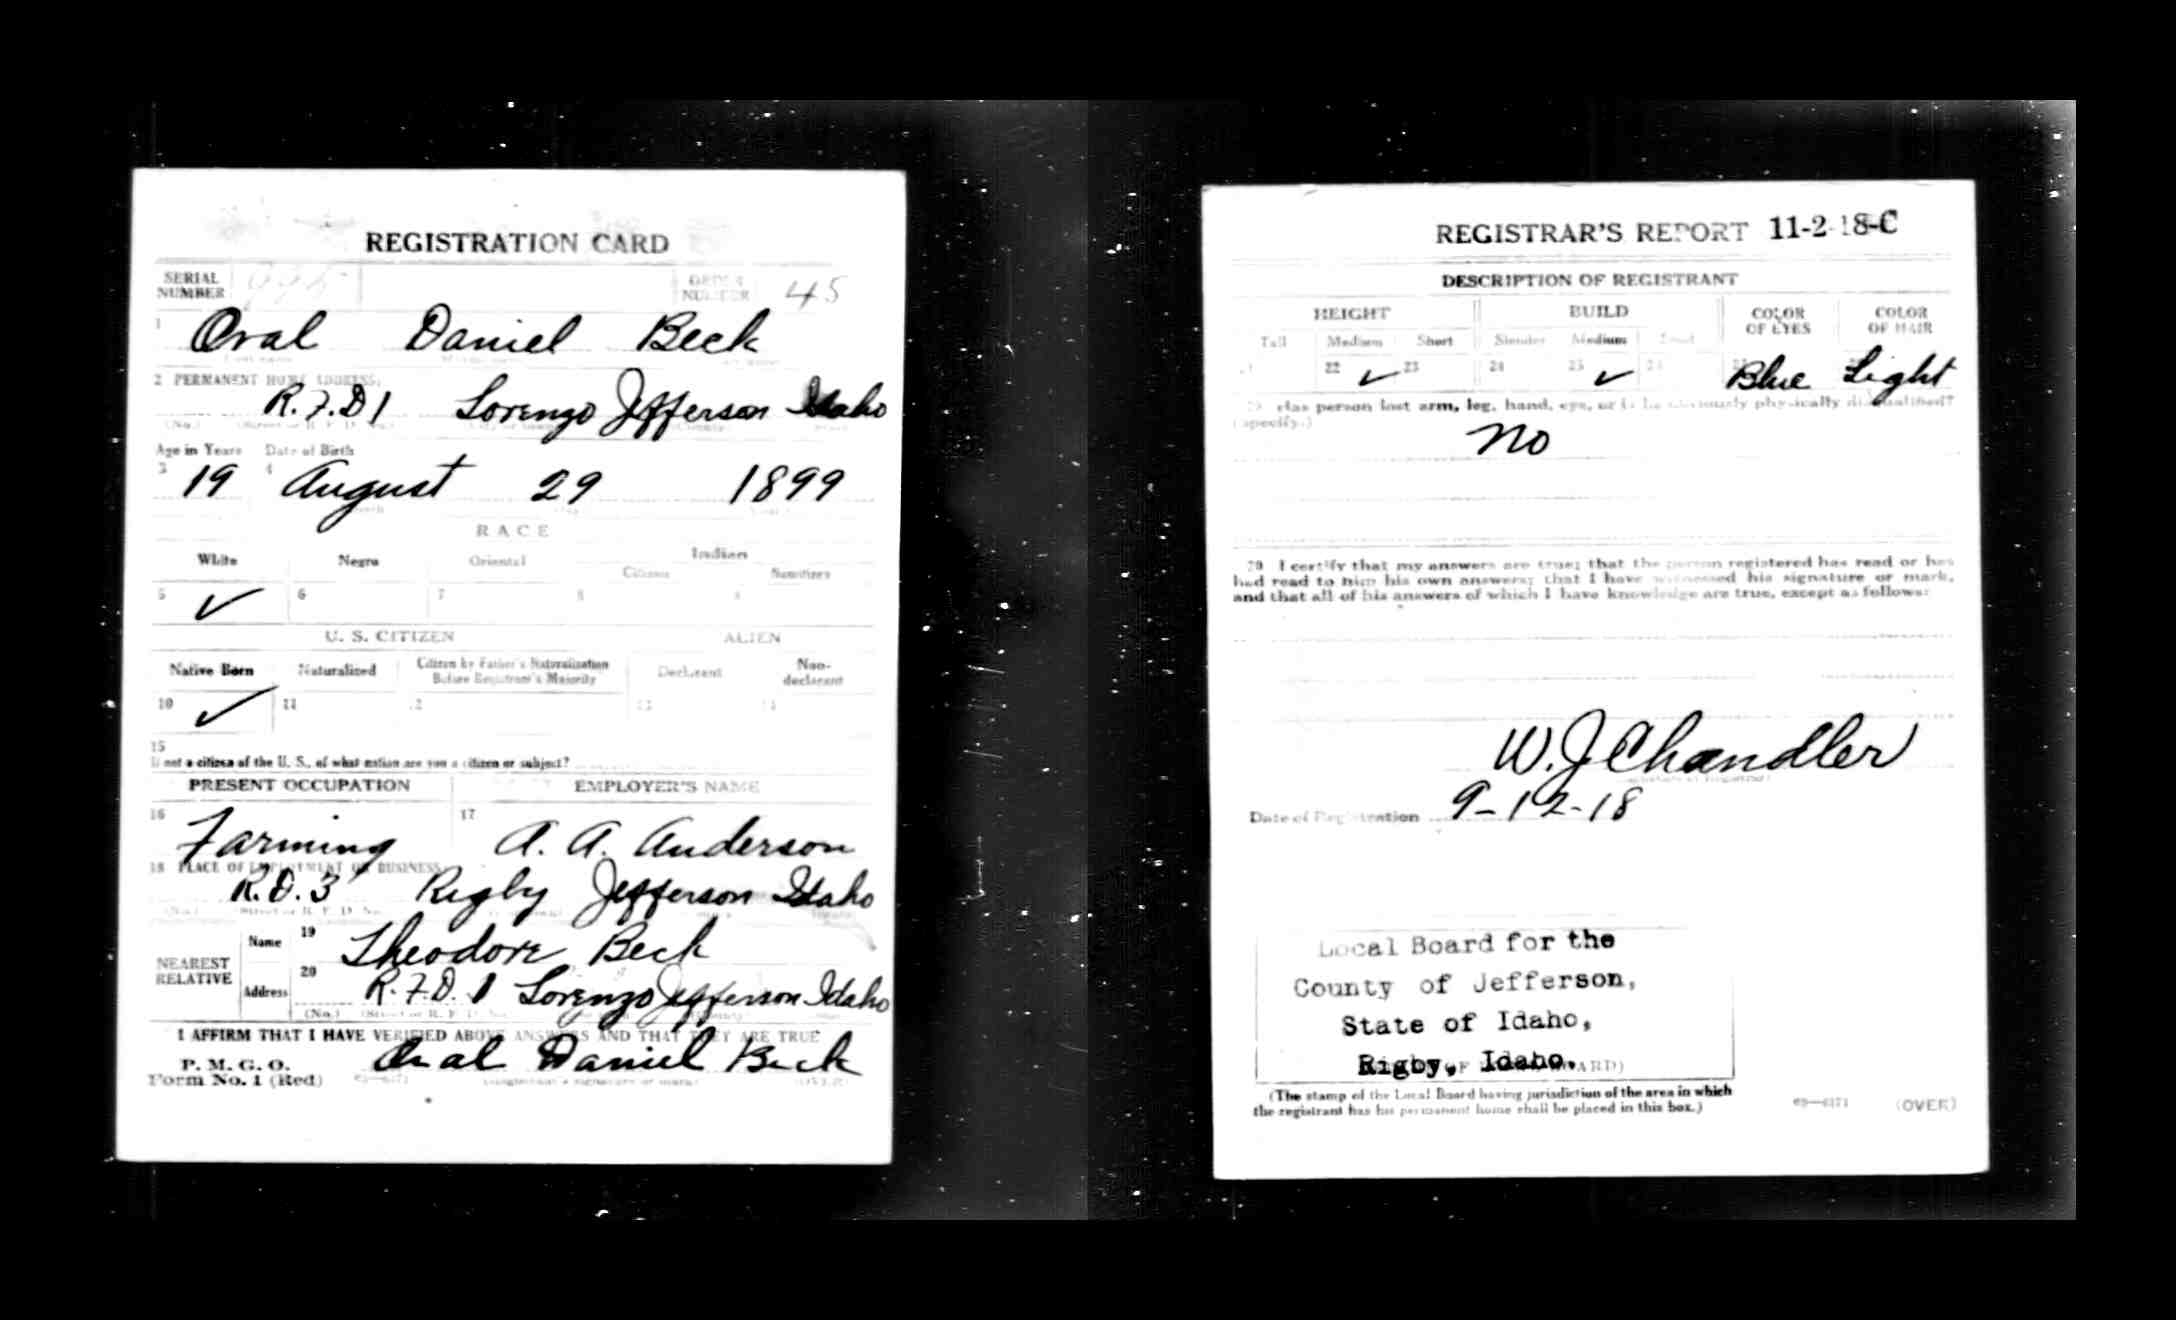 REGISTRATION CARD
SERIAL NUMBER ORDER NUMBER 45
1 Oral Daniel Beck
2 PERMANENT HOME ADDRESS:
R.F.D 1 Lorenzo Jefferson Idaho
Age in Years Date of Birth
3 19 4 August 29 1899
RACE
White Negro Oriental Indian
Citizen Noncitizen
5 ✓ 6 7 8
U. S. CITIZEN ALIEN
Native Born Naturalized Citizen by Father's Naturalization Before Registrant's Majority Declarant Non-declarant
10 ✓ 11 12 13
15
If not a citizen of the U. S., of what nation are you a citizen or subject?
PRESENT OCCUPATION EMPLOYER'S NAME
16 Farming 17 A. A. Anderson
18 PLACE OF EMPLOYMENT OR BUSINESS:
R.D. 3 Rigby Jefferson Idaho
NEAREST RELATIVE Name 19 Theodore Beck
Address 20 R.F.D. 1 Lorenzo Jefferson Idaho
(No.)
I AFFIRM THAT I HAVE VERIFIED ABOVE ANSWERS AND THAT THEY ARE TRUE
P. M. G. O.
Form No. 1 (Red) Oral Daniel Beck
REGISTRAR'S REPORT 11-2-18-C
DESCRIPTION OF REGISTRANT
HEIGHT BUILD COLOR OF EYES COLOR OF HAIR
Tall Medium Short Slender Medium
22 ✓ 23 24 25 ✓ Blue Light
Has person lost arm, leg, hand, eye, or is he obviously physically disqualified?
(Specify.)
No
I certify that my answers are true; that the person registered has read or has
had read to him his own answers; that I have witnessed his signature or mark,
and that all of his answers of which I have knowledge are true, except as follows:
W. J Chandler
Date of Registration 9-12-18
Local Board for the
County of Jefferson,
State of Idaho,
Rigby, Idaho.
(The stamp of the Local Board having jurisdiction of the area in which
the registrant has his permanent home shall be placed in this box.)
(OVER)